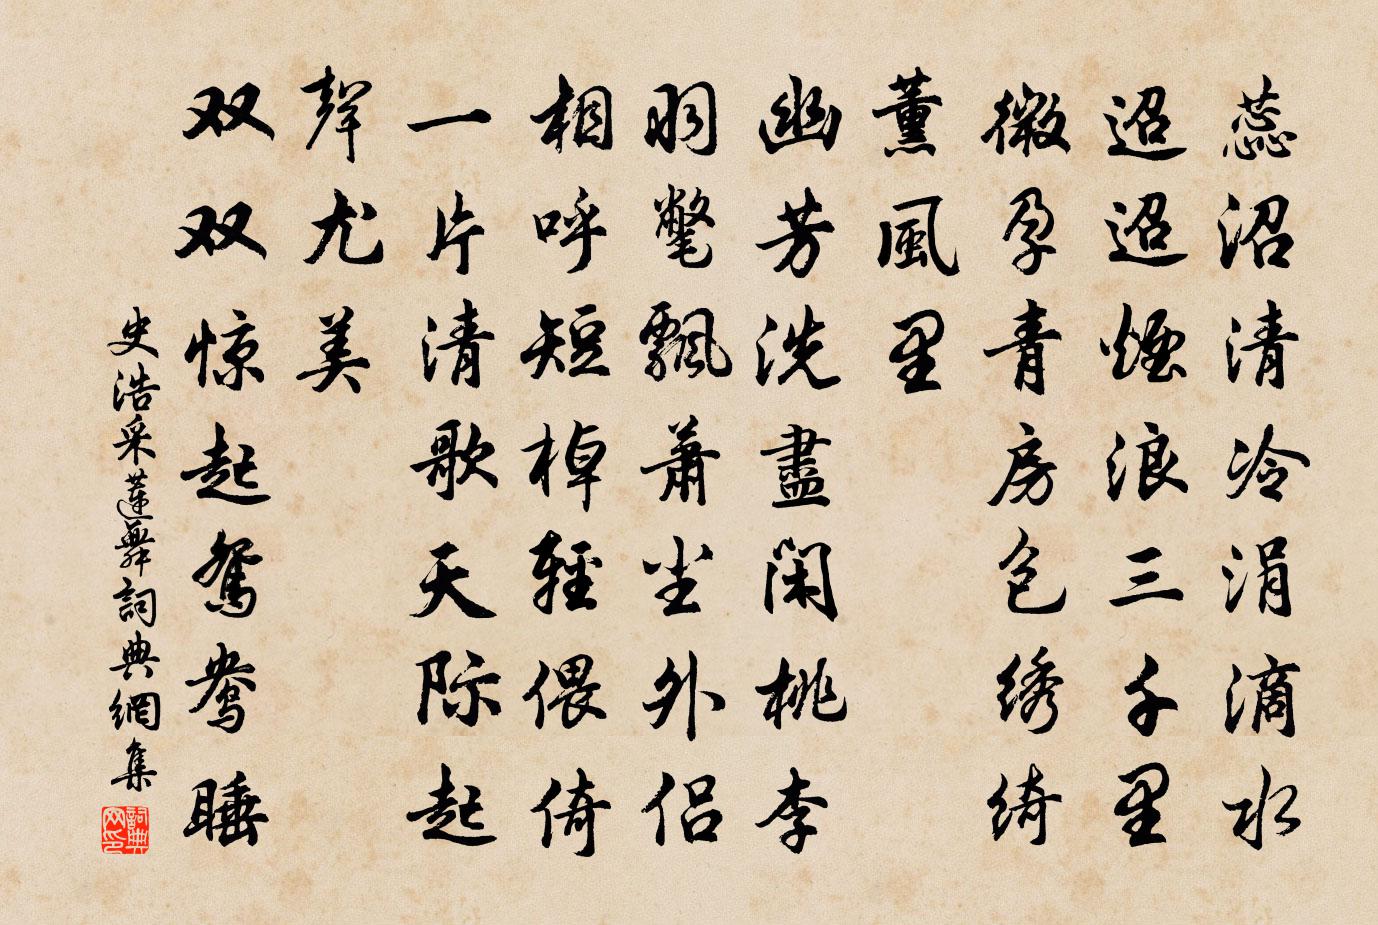 蕊沼清冷涓滴水
迢迢煙浪三千里
微孕青房包绣绮
薰風里
幽芳洗盡閑桃李
羽氅飄蕭塵外侣
相呼短棹輕偎倚
一片清歌天际起
聲尤美
双双惊起鸳鸯睡
史浩采蓮舞詞典網集
詞典网印